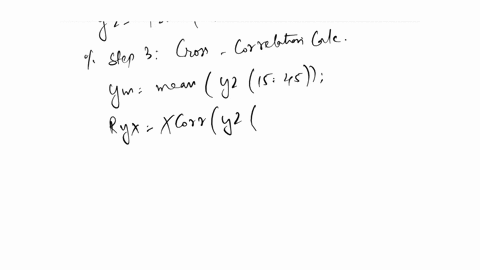 % Step 3: Cross-Correlation Calc.
ym = mean (y2 (15:45));
Ryx = XCorr (y2 (